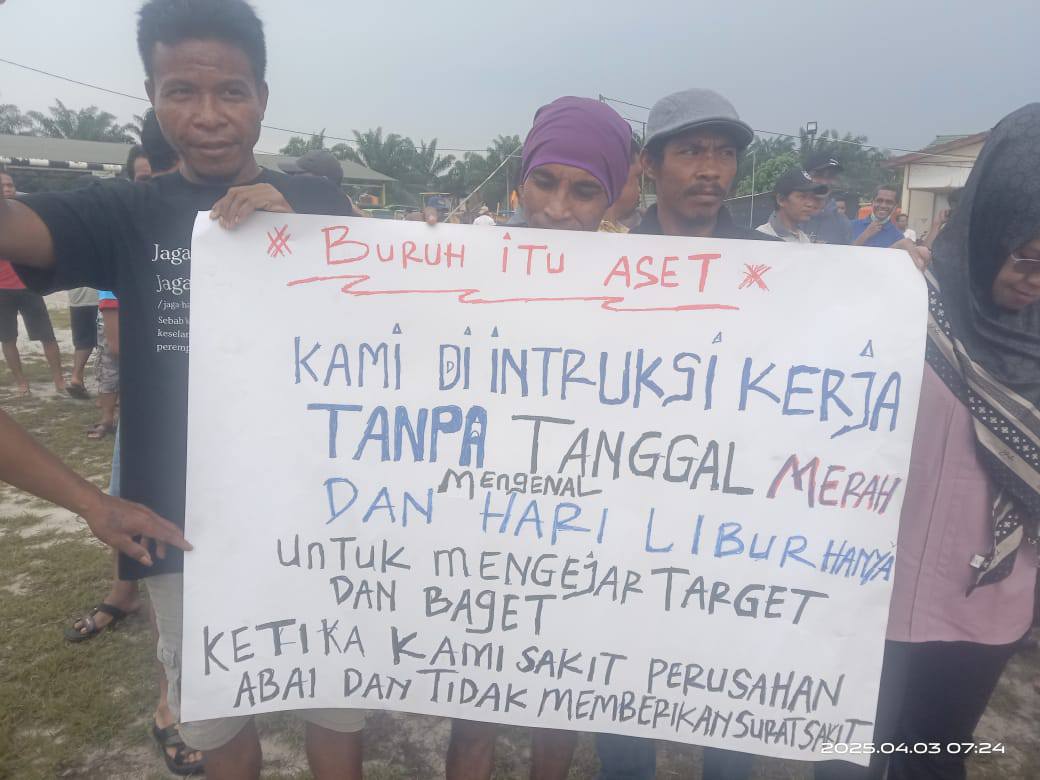 * BURUH iTU ASET *
KAMi Di iNTRUKSi KERJA
TANPA TANGGAL MERAH
MENGENAL
DAN HARI LIBUR HANYA
UNTUK MENGEJAR TARGET
DAN BAGET
KETIKA KAMI SAKIT PERUSAHAN
ABAI DAN TIDAK MEMBERIKAN SURAT SAKIT
Jaga
Jaga
/jaga·ha
Sebab k
keselan
peremp
2025.04.03 07:24